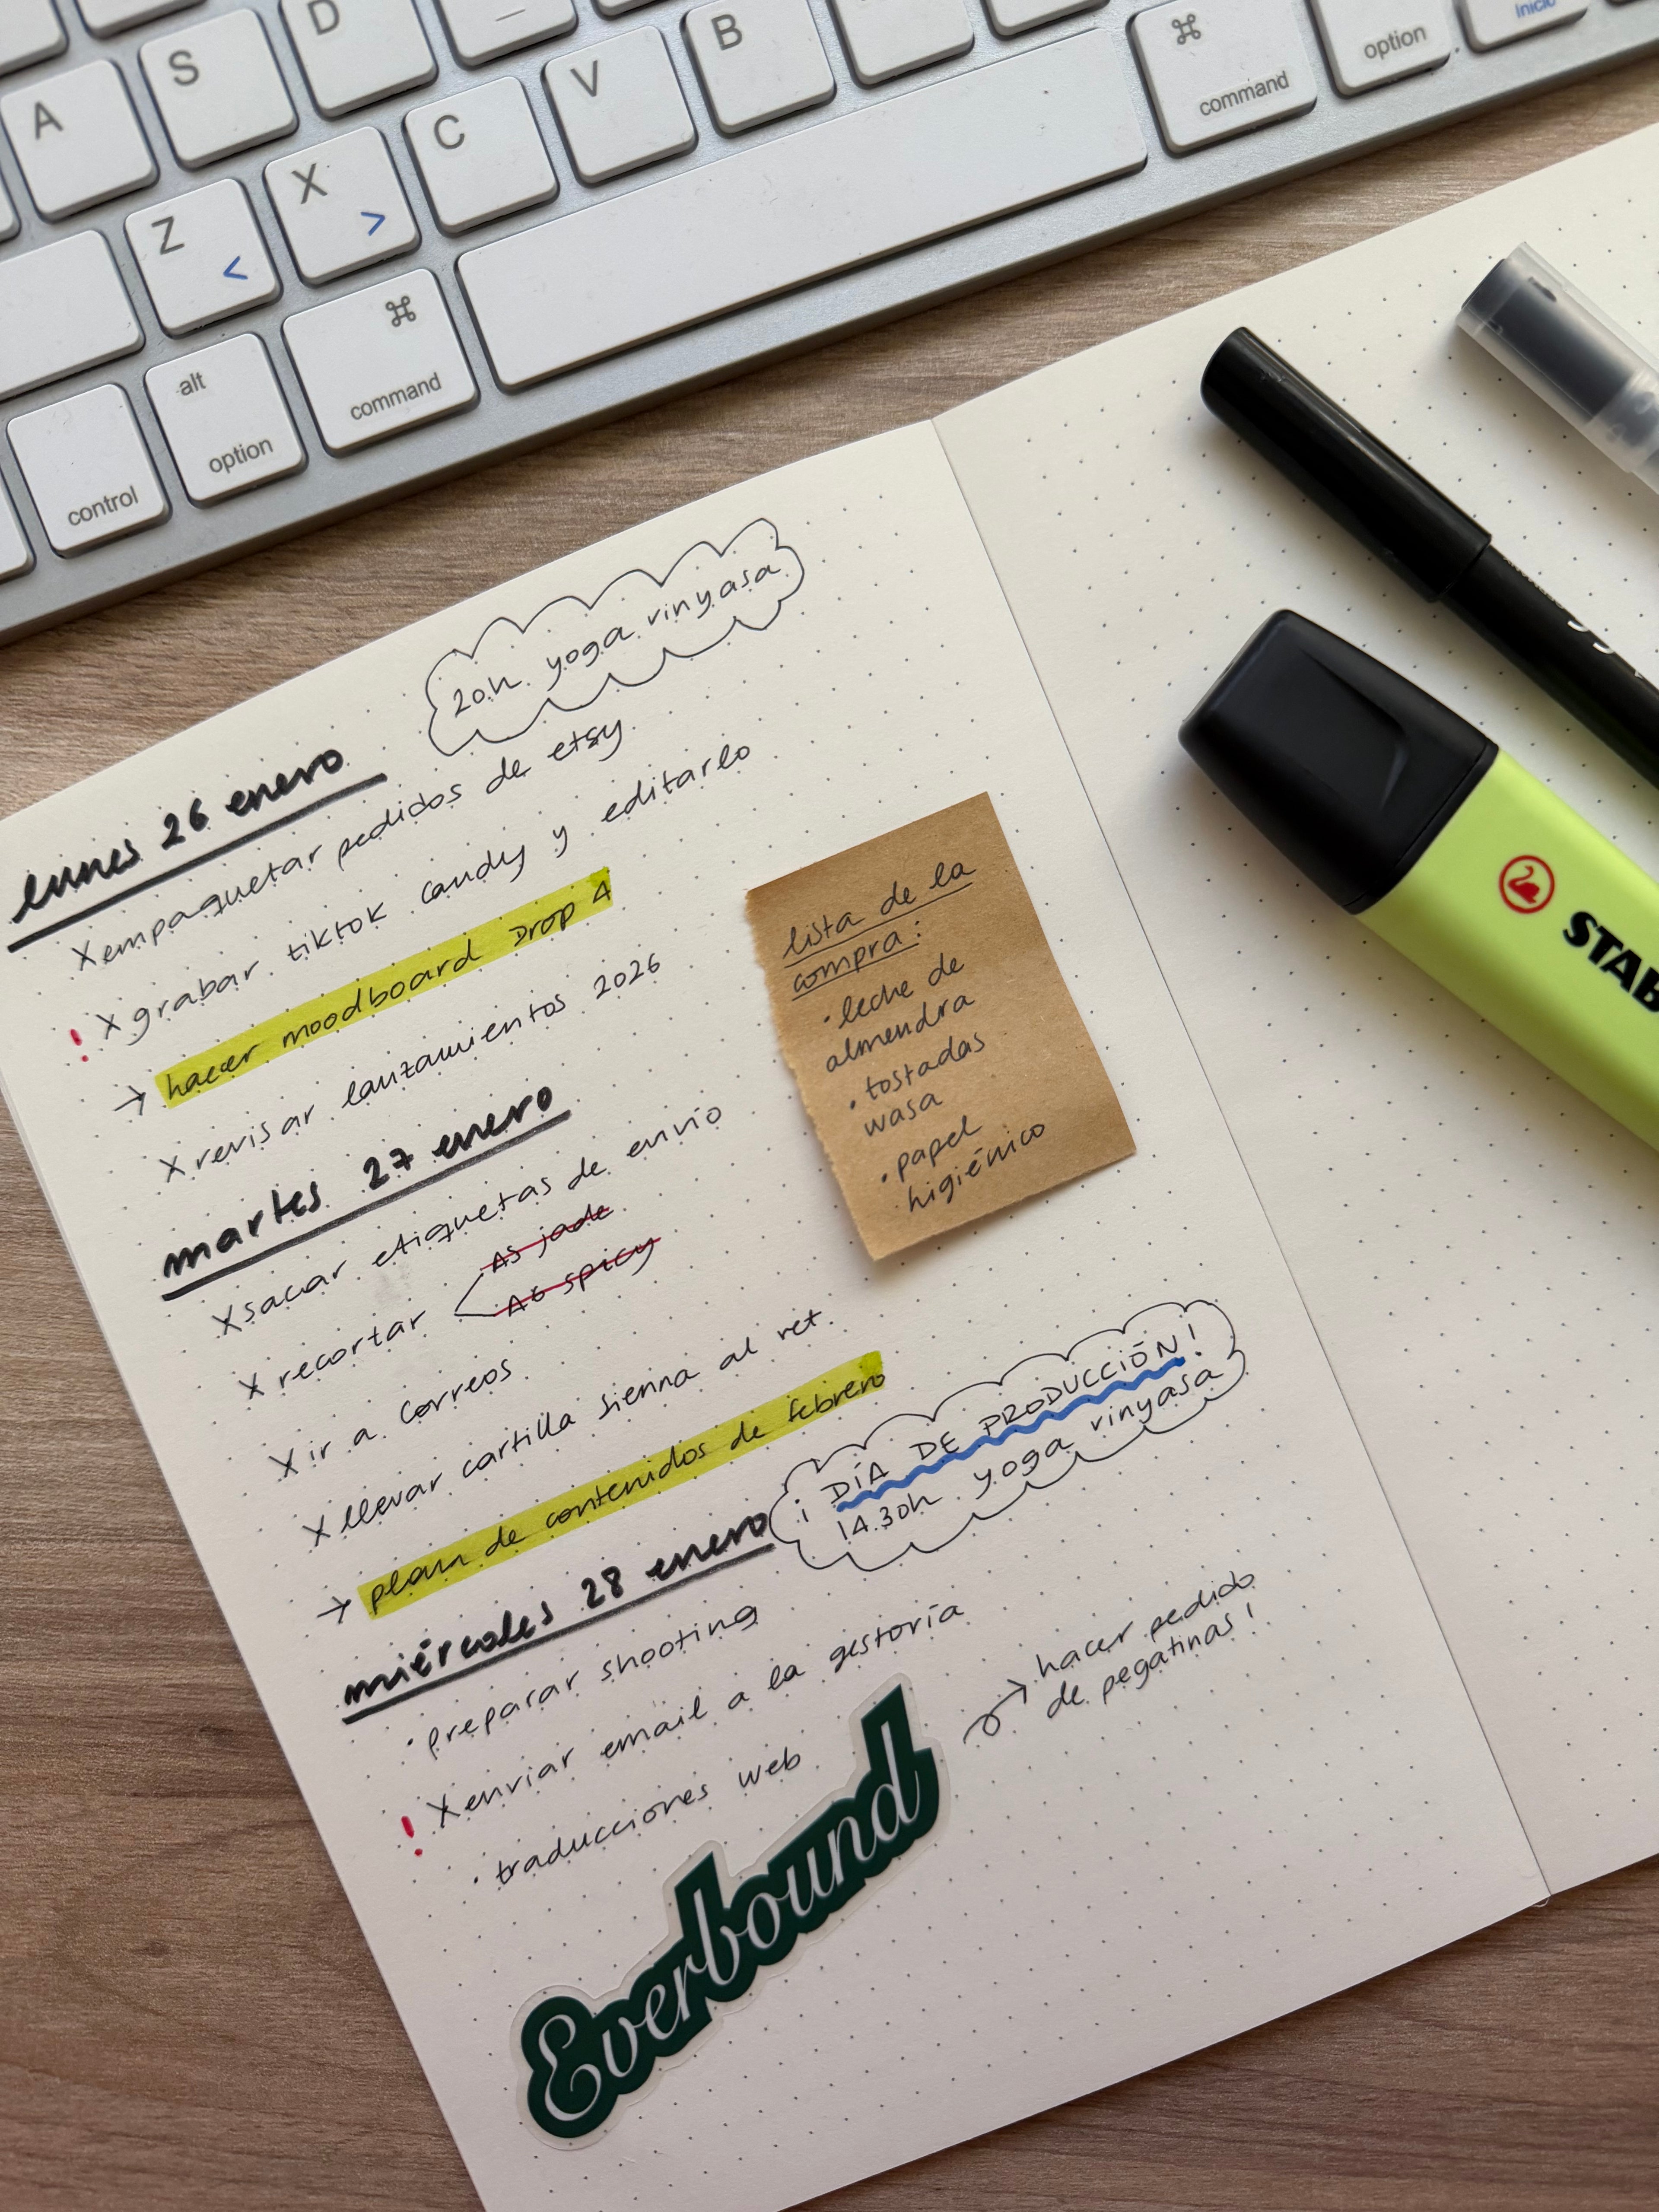 A
S
D
Z
<
X
>
C
V
B
⌘
command
option
inicio
control
alt
option
⌘
command
20h yoga vinyasa
lunes 26 enero
X empaquetar pedidos de etsy
! X grabar tiktok candy y editarlo
→ hacer moodboard Drop 4
X revisar lanzamientos 2026
martes 27 enero
X sacar etiquetas de envío
X recortar
A5 jade
A6 spicy
X ir a Correos
X llevar cartilla sienna al vet.
→ plan de contenidos de febrero
miércoles 28 enero
¡DÍA DE PRODUCCIÓN!
14.30h yoga vinyasa
· preparar shooting
! X enviar email a la gestoría
· traducciones web
→ hacer pedido
de pegatinas!
Everbound
lista de la
compra:
· leche de
almendra
· tostadas
wasa
· papel
higiénico
STAB